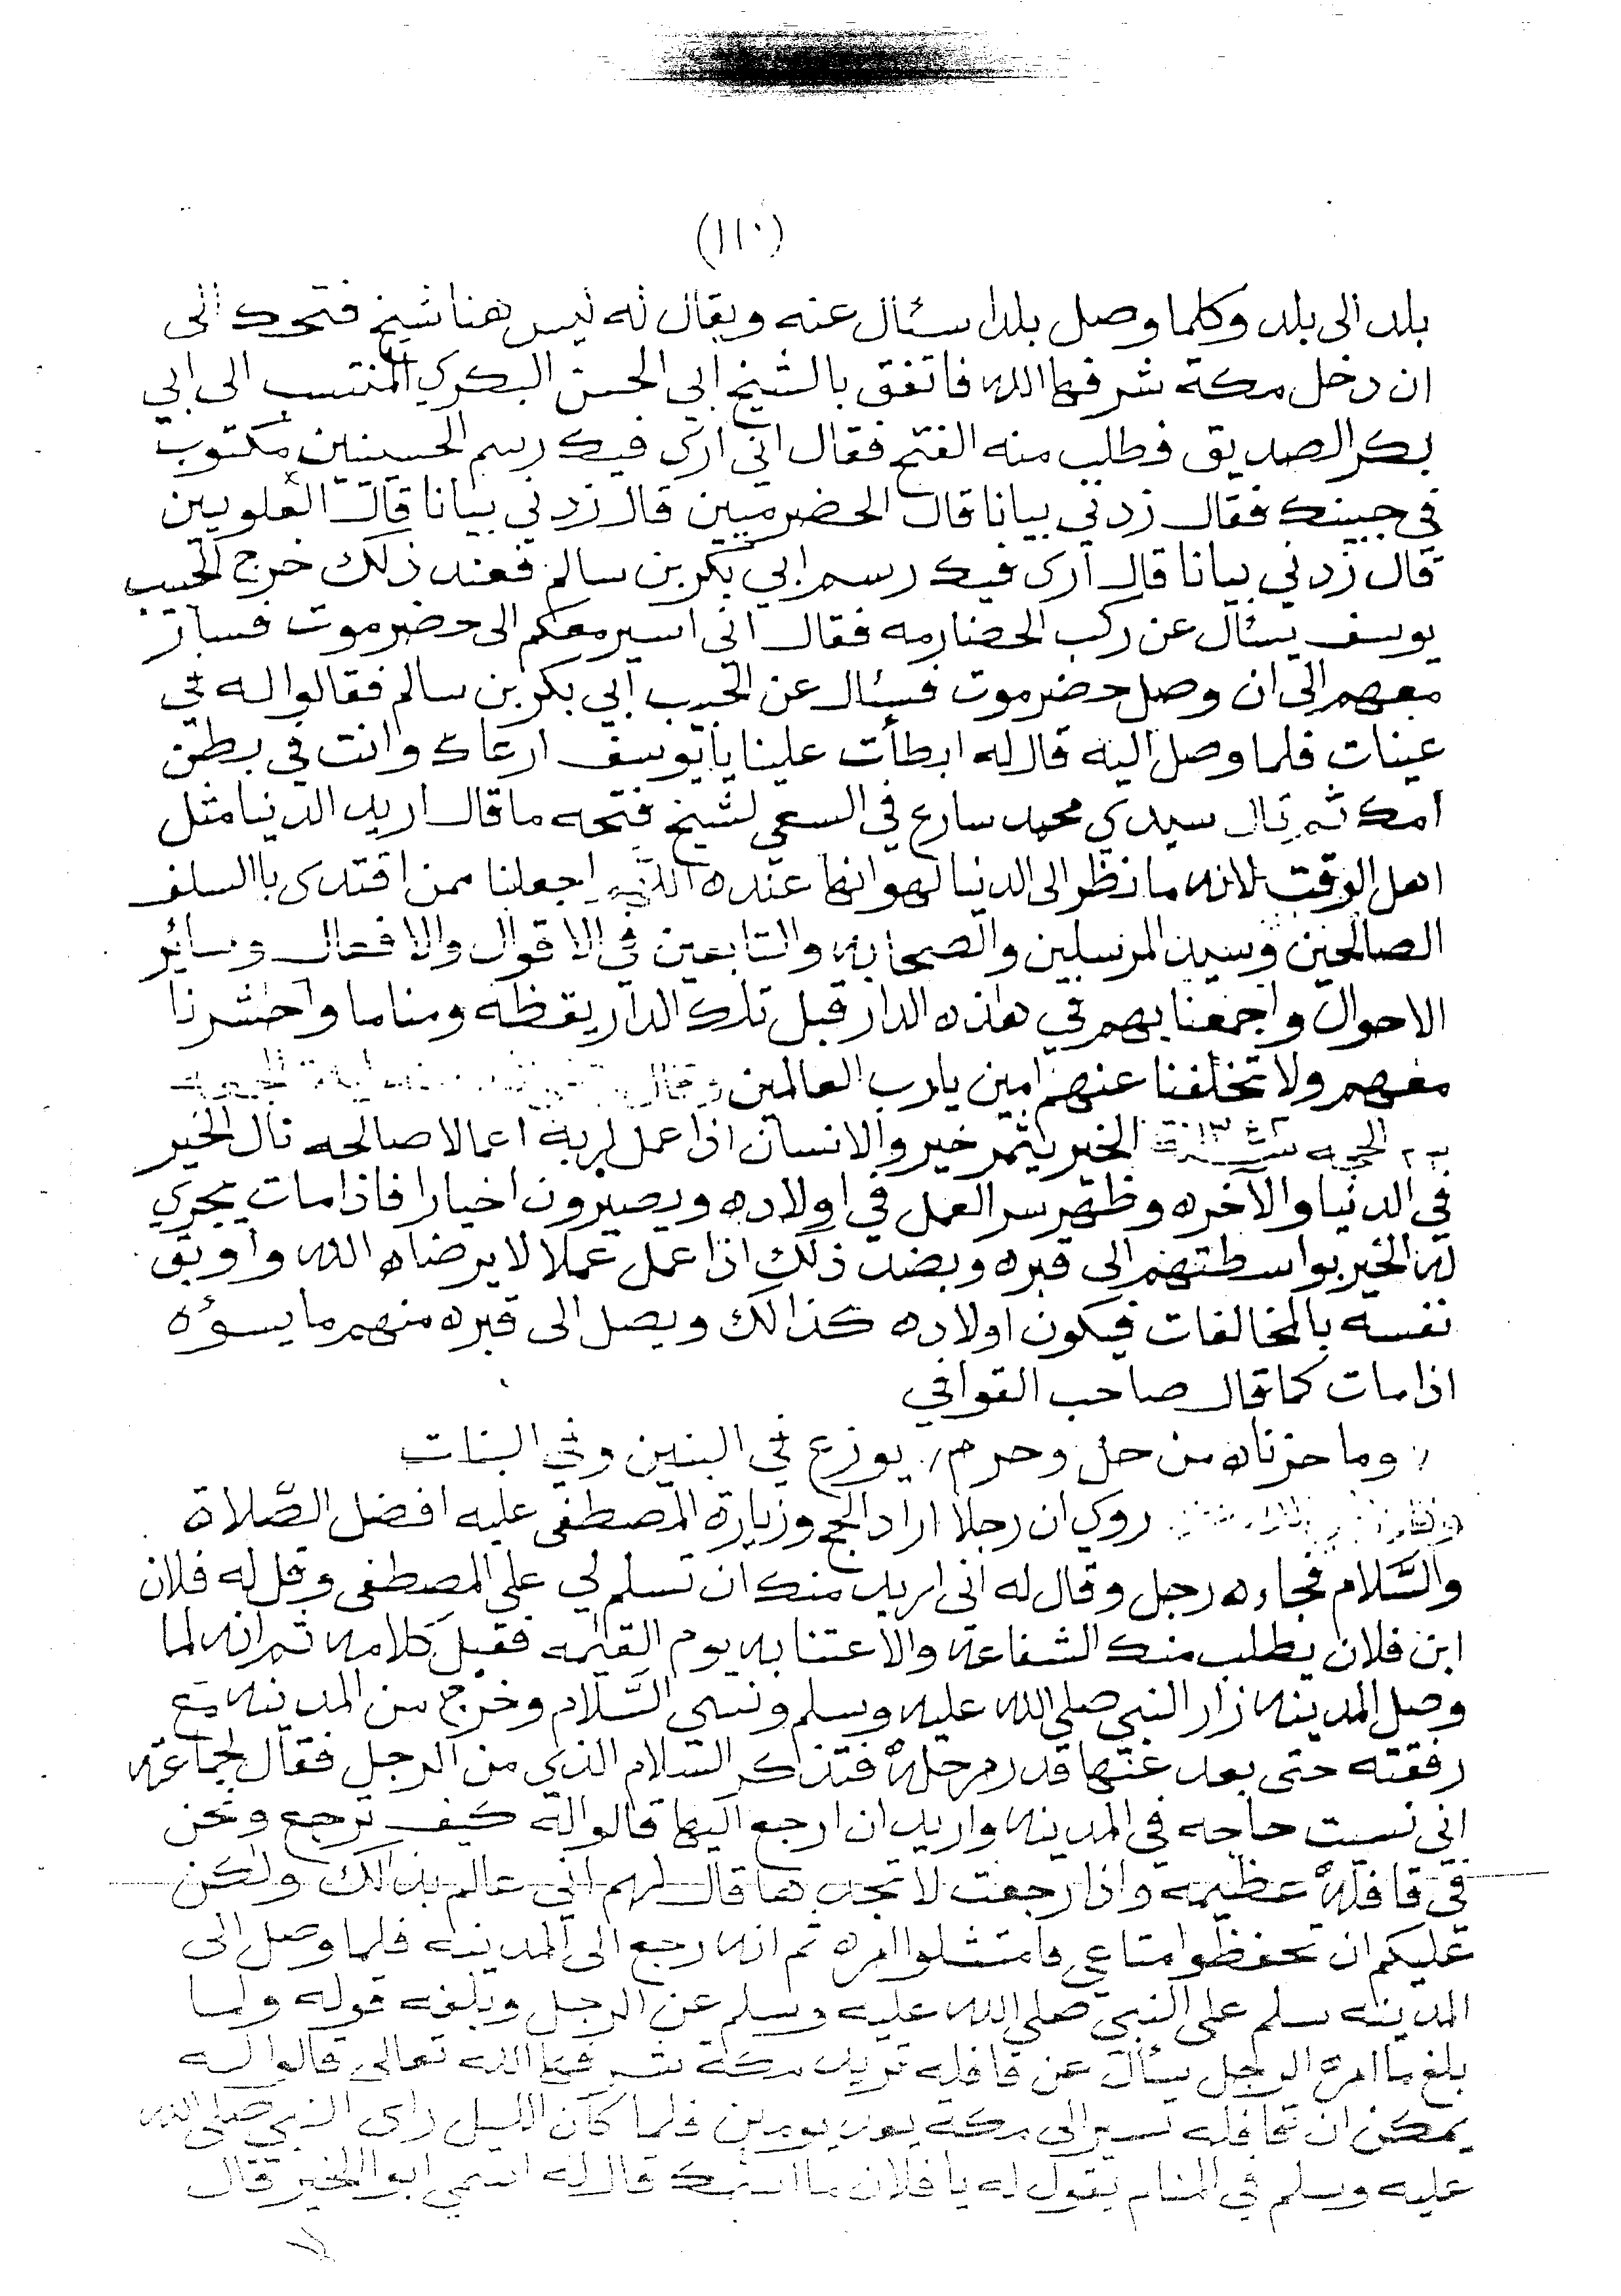 (١١٠)
بلد الى بلد وكلما وصل بلدا سئال عنه ويقال له ليس هنا شيخ فتحك الى
ان دخل مكة شرفها الله فاتفق بالشيخ ابي الحسن البكري المنتسب الى ابي
بكر الصديق فطلب منه الفتح فقال اني ارى فيك رسم الحسينين مكتوب
في جبينك فقال زدني بيانا قال الحضرميين قال زدني بيانا قال العلويين
قال زدني بيانا قال ارى فيك رسم ابي بكر بن سالم فعند ذلك خرج الحبيب
يوسف يسئال عن ركب الحضارمه فقال انى اسير معكم الى حضرموت فسار
معهم الى ان وصل حضرموت فسئال عن الحبيب ابي بكر بن سالم فقالوا له في
عينات فلما وصل اليه قال له ابطأت علينا يا يوسف ارعاك وانت في بطن
امك ثم قال سيدي محمد سارع في السعي لشيخ فتحه ما قال اريد الدنيا مثل
اهل الوقت لانه ما نظر الى الدنيا لهوانها عنده اللهم اجعلنا ممن اقتدى باالسلف
الصالحين وسيد المرسلين والصحابه والتابعين في الاقوال والافعال وسائر
الاحوال واجمعنا بهم في هاذه الدار قبل تلك الدار يقظه ومناما واحشرنا
معهم ولا تخلفنا عنهم امين يا رب العالمين وقال
الحجه الخير يثمر خير والانسان اذا عمل لربه اعمالا صالحه نال الخير
في الدنيا والآخره وظهر سر العمل في اولاده ويصيرون اخيارا فاذا مات يجري
له الخير بواسطتهم الى قبره وبضد ذلك اذا عمل عملا لا يرضاه الله واوبق
نفسه بالمخالفات فيكون اولاده كذالك ويصل الى قبره منهم ما يسوؤه
اذا مات كما قال صاحب القوافي
وما حزناه من حل وحرم / يوزع في البنين وفي البنات
روي ان رجلا اراد الحج وزيارة المصطفى عليه افضل الصَّلاة
والسَّلام فجاءه رجل وقال له انى اريد منك ان تسلم لي على المصطفى وقل له فلان
ابن فلان يطلب منك الشفاعة والاعتنا به يوم القيٰمه فقبل كلامه ثم انه لما
وصل المدينه زار النبي صلى الله عليه وسلم ونسي السَّلام وخرج من المدينه مع
رفقته حتى بعد عنها قدر مرحلة فتذكر السلام الذي من الرجل فقال لجماعته
اني نسيت حاجه في المدينه واريد ان ارجع اليها قالوا له كيف ترجع ونحن
في قافلة عظيمه واذا رجعت لا تجدها قال لهم اني عالم بذالك ولكن
عليكم ان تحفظوا متاعي فامتثلوا امره ثم انه رجع الى المدينه فلما وصل الى
المدينه سلم على النبي صلى الله عليه وسلم عن الرجل وبلغه قوله ولما
بلغ ما امره الرجل سئال عن قافله تريد مكة شرفها الله تعالى قالوا له
يمكن ان قافله تسير الى مكه بعد يومين فلما كان الليل راى النبي صلى الله
عليه وسلم في المنام يقول له يا فلان ما اسمك قال له اسمي ابوا الخير قال